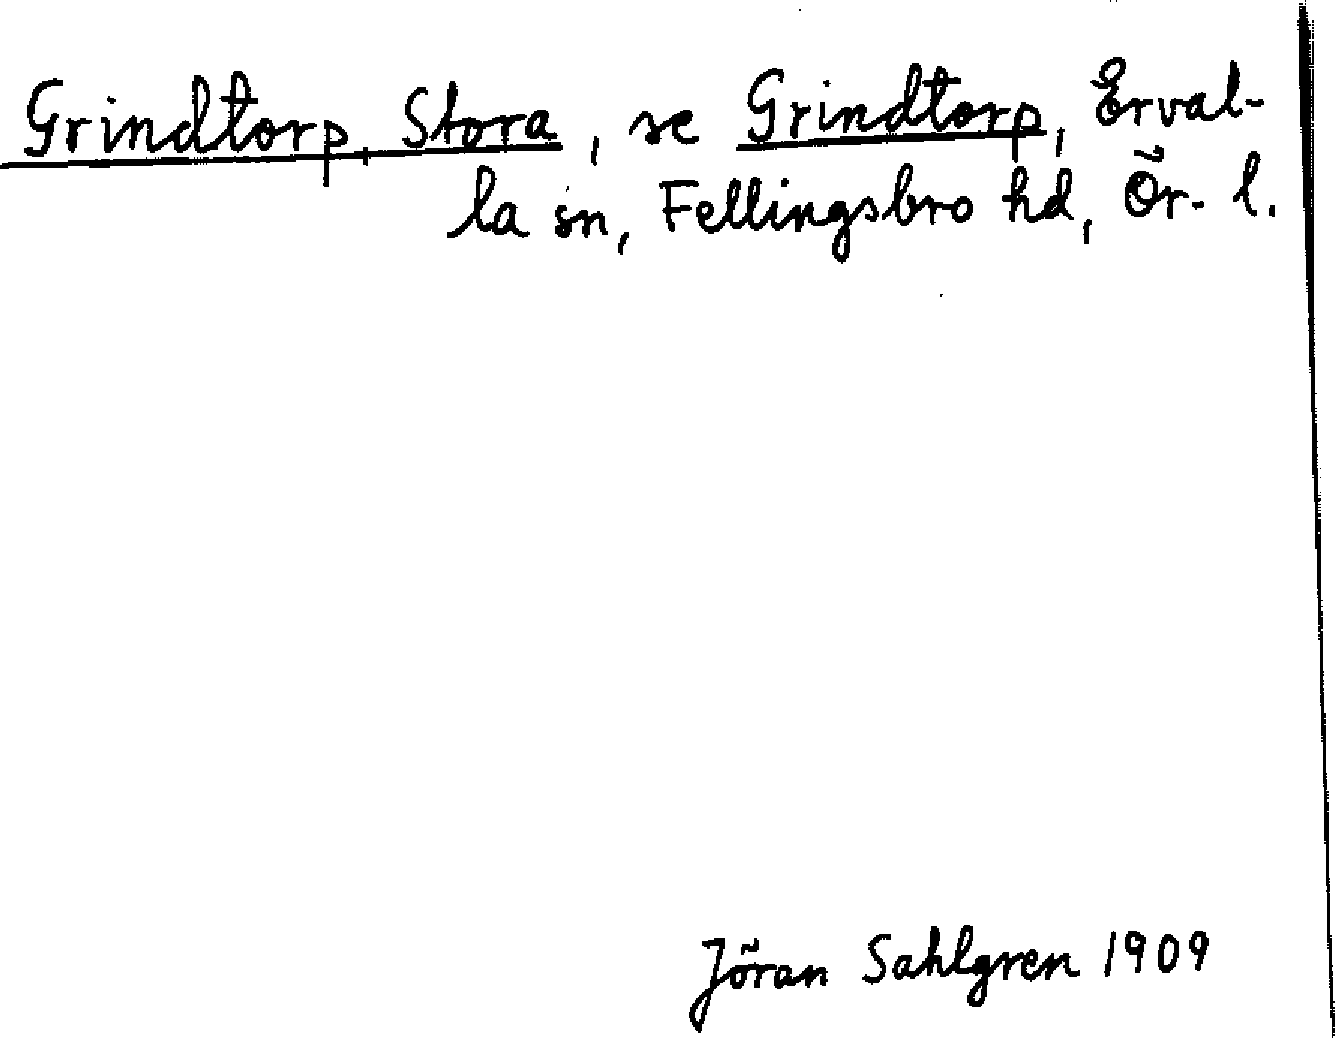 Grindtorp, Stora, se Grindtorp, Erval-
la sn, Fellingsbro hd, Ör. l.
Jöran Sahlgren 1909